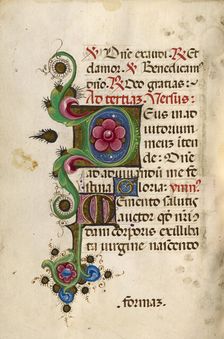 ℣ Dñe exaudi. ℞ Et
clamor. ℣ Benedicam⁹
dño. ℞ Deo gratias:
Ad tertiaz Versus:
Deus in ad
iutorium
meuz inten
de: Dñe
ad adiuuandū me fe
stina Gloria: ymn⁹.
Memento salutis
auctor qđ nr̄i
dam corporis exilibi
ta uirgine nascendo
formaz.